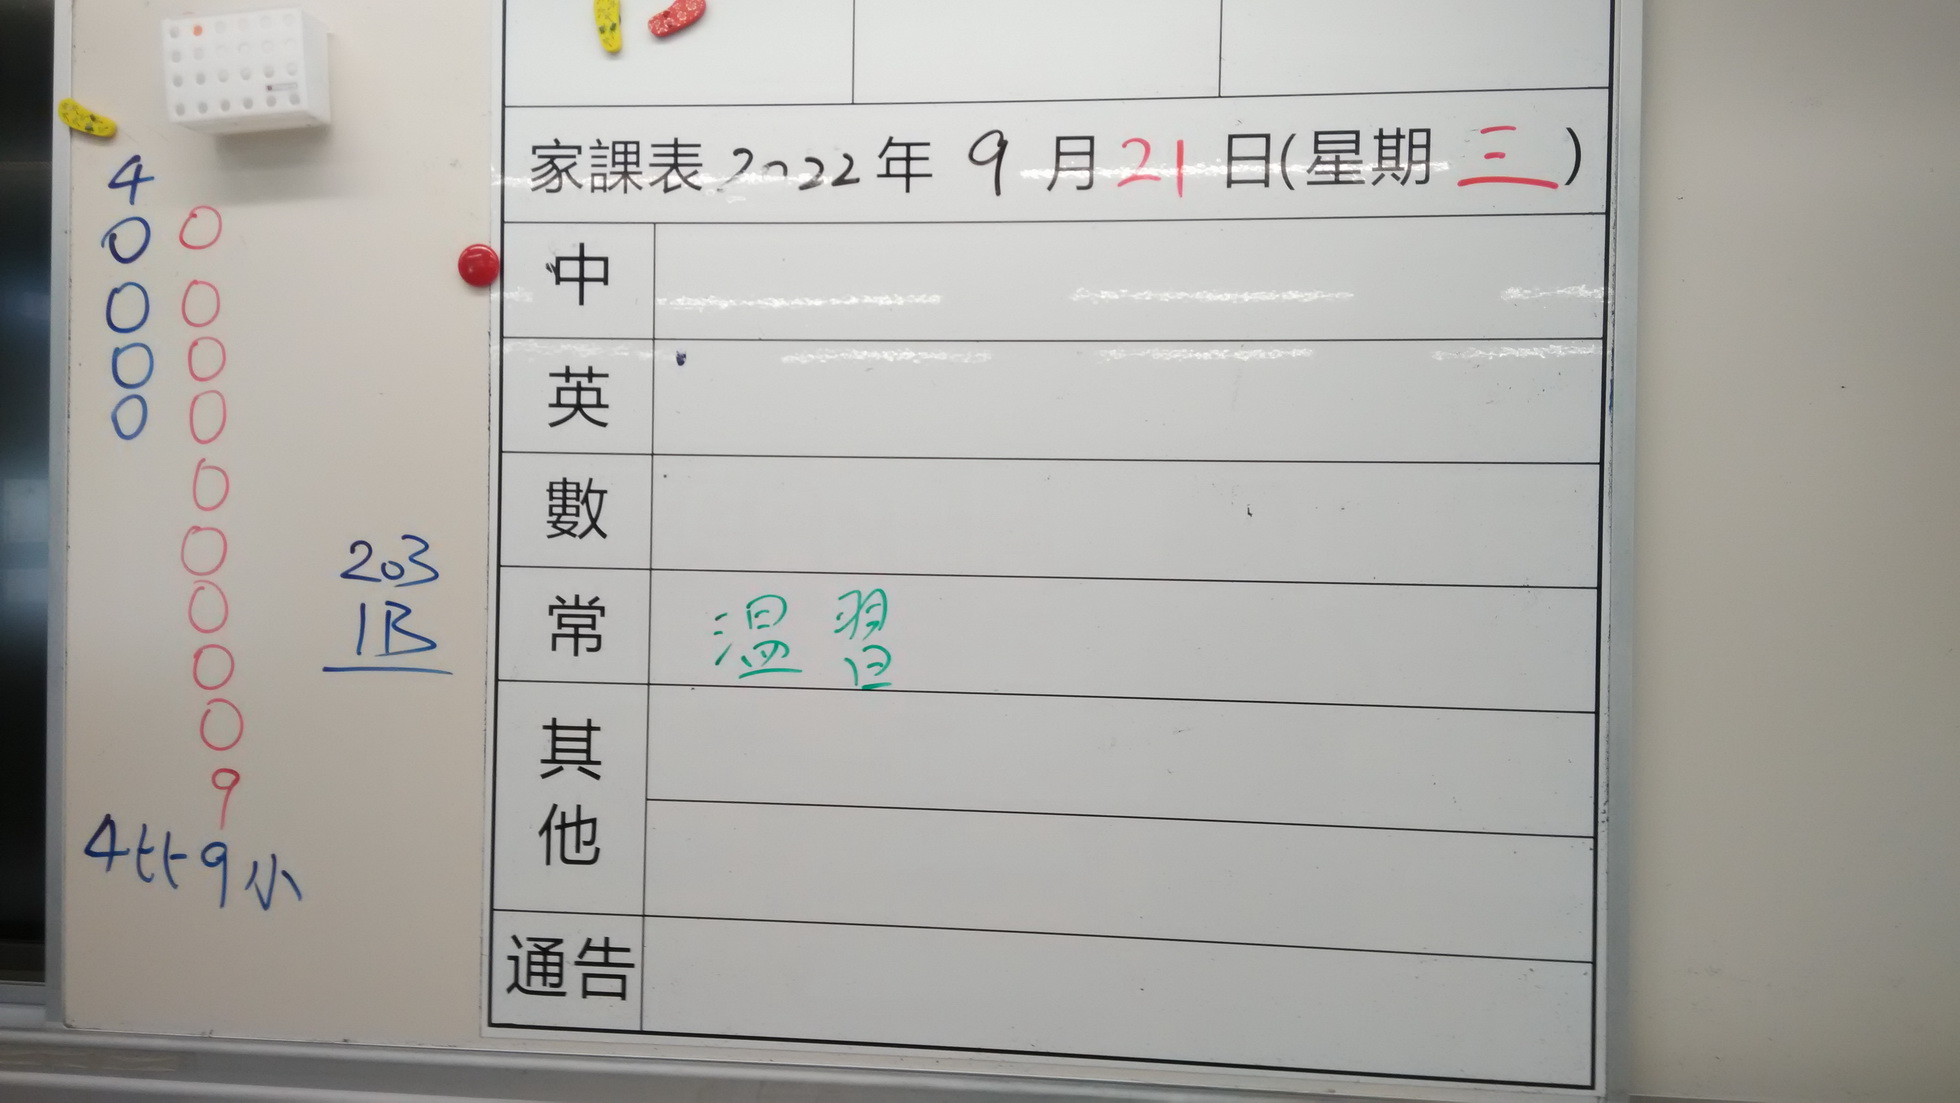 家課表 2022年 9 月 21 日(星期 三 )
中
英
數
常 溫習
其他
通告
4
0 0
0 0
0 0
0 0
0
0
0
0
0
9
4比9小
203
1B